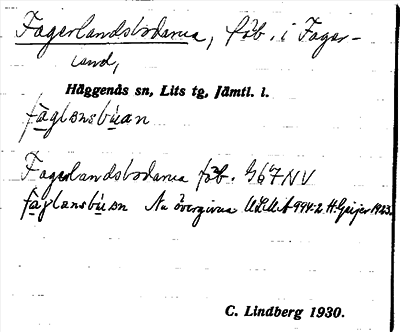 Fagerlandsbodarna, fäb. i Fager-
land,
Häggenås sn, Lits tg, Jämtl. l.
fàglansbùan
Fagerlandsbodarna fäb. G67NV
fàglansbùan Nu övergivna ULMA 994:2 H. Geijer 1923.
C. Lindberg 1930.